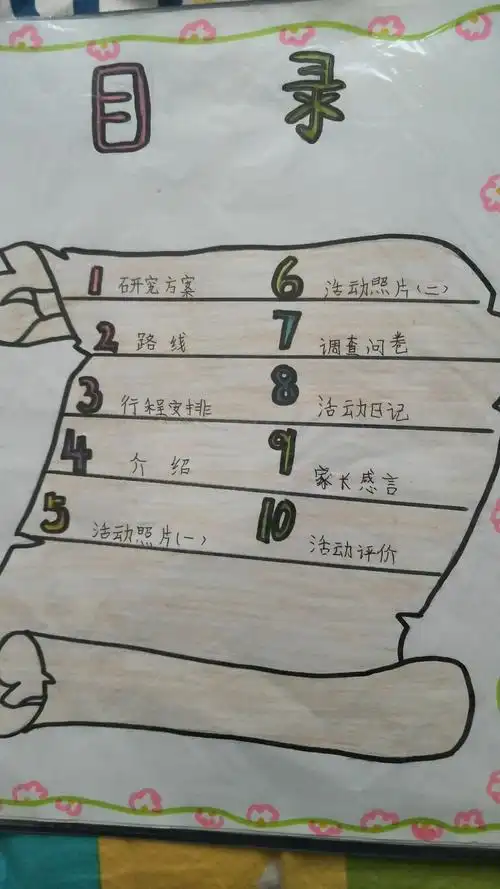 目录
1 研究方案
2 路线
3 行程安排
4 介绍
5 活动照片(一)
6 活动照片(二)
7 调查问卷
8 活动日记
9 家长感言
10 活动评价